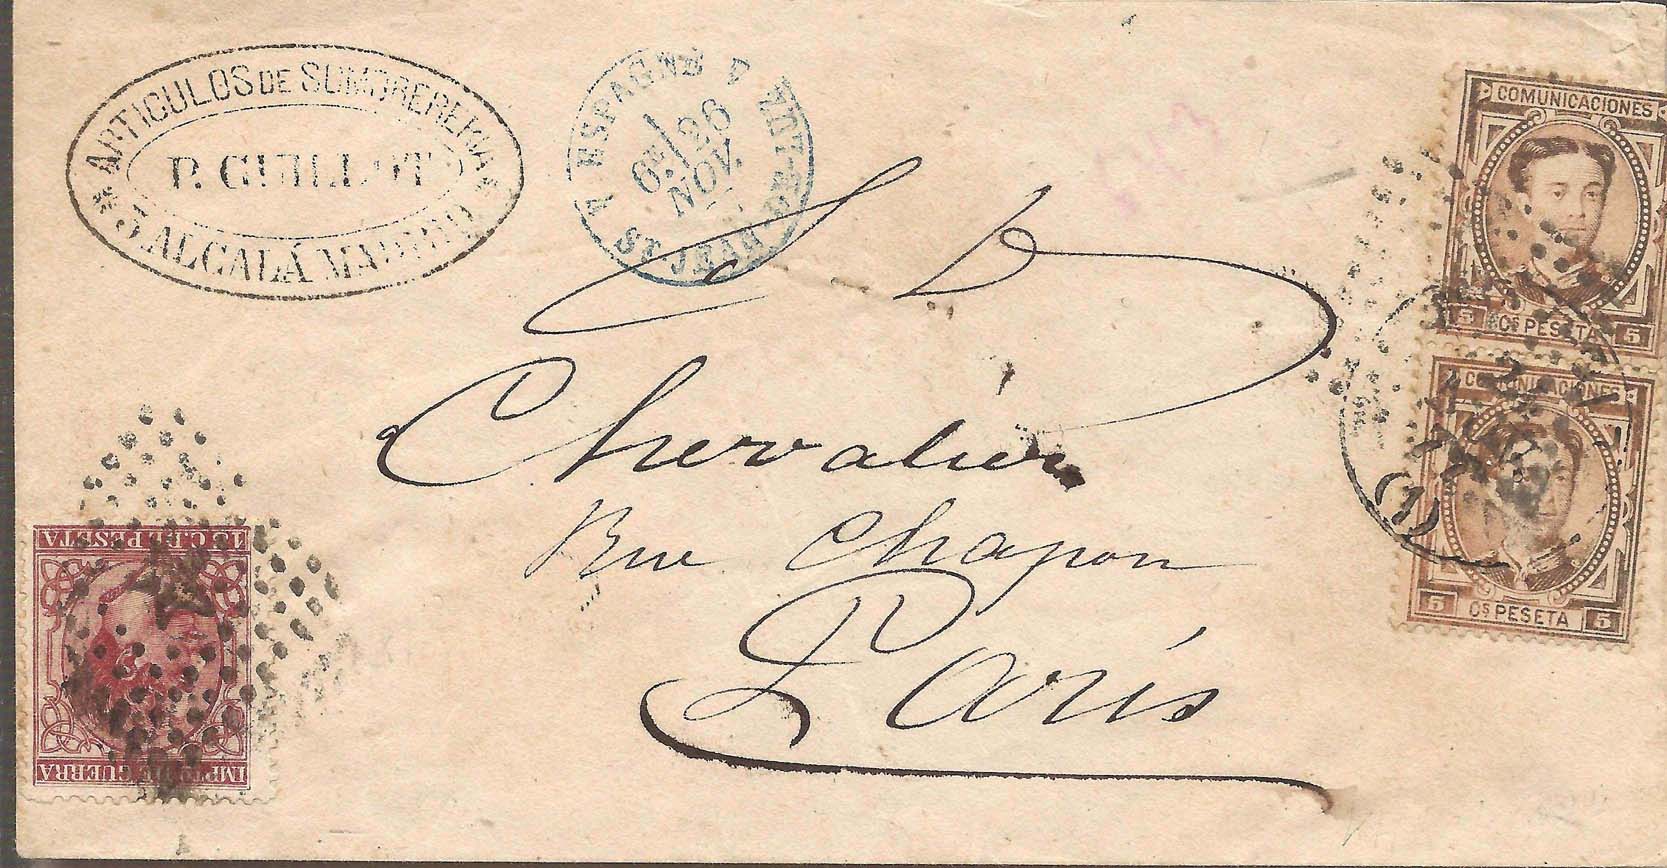 ARTICULOS DE SOMBRERERIA
P. GUILLOT
3, ALCALÁ MADRID
ESPAGNE
6E 26
NOV.
ST JEAN-DE-LUZ
COMUNICACIONES
5 Cs PESETA 5
COMUNICACIONES
5 Cs PESETA 5
(1)
Chevalier
Rue Chapon
Paris
15 C. DE PESETA
IMPto DE GUERRA